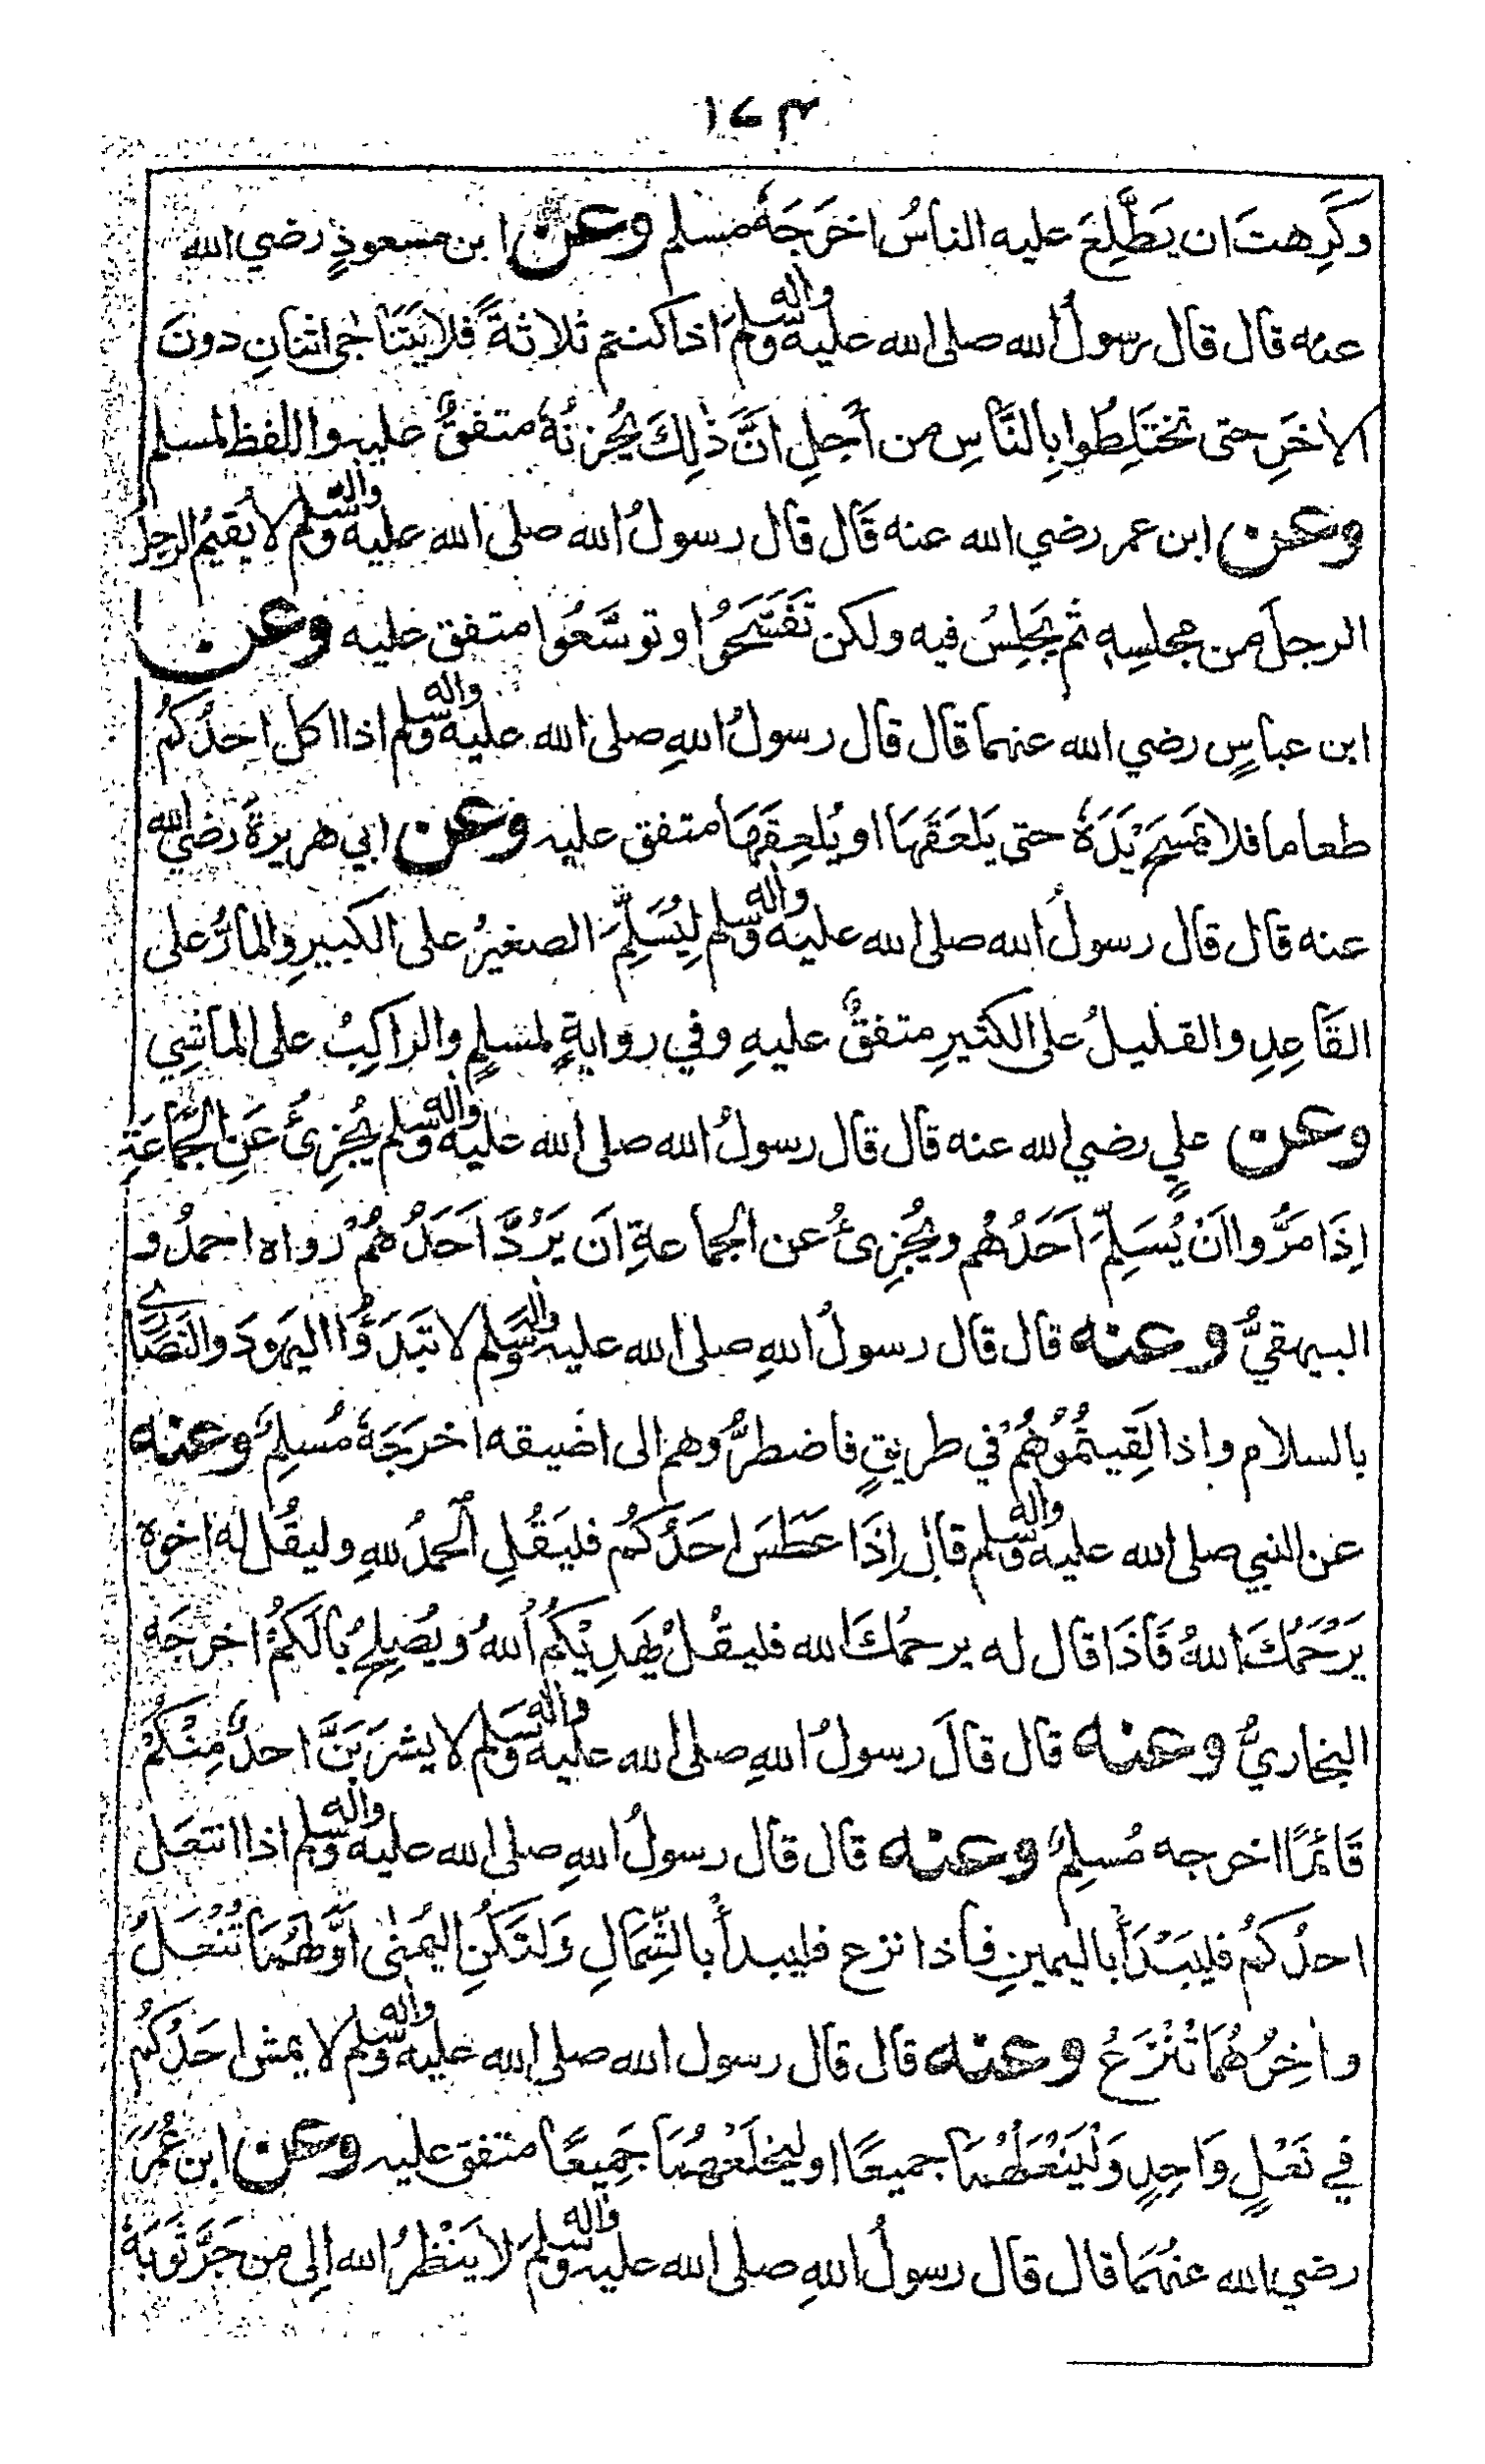 ١٧٣
وكَرِهتَ ان يَطَّلِعَ عليه الناسُ اخرَجَهٗ مسلم وعن ابن مسعودٍ رضي الله
عنه قال قال رسولُ الله صلى الله عليه واٰله وسلمَ اذا كنتم ثلاثةً فلا يَتَنَاجى اثنانِ دونَ
الاٰخَرِ حتى تختَلِطُوا بِالنَّاسِ من أَجلِ انَّ ذٰلِكَ يُحزِنُهٗ متفقٌ عليه واللفظ لمسلم
وعن ابن عمر رضي الله عنه قَال قال رسولُ الله صلى الله عليه واٰله وسلم لا يُقيمُ الرجل
الرجلَ من مجلسِهٖ ثم يَجلِسُ فيه ولكن تَفَسَّحُوا وتوسَّعُوا متفق عليه وعن
ابن عباسٍ رضي الله عنهما قال قال رسولُ اللهِ صلى الله عليه واٰله وسلم اذا اكل احدُكُم
طعاما فلا يمسَح يَدَهٗ حتى يَلعَقَهَا او يُلعِقَهَا متفق عليه وعن ابي هريرةَ رضي الله
عنه قال قال رسولُ الله صلى الله عليه واٰله وسلم لِيُسَلِّمَ الصغيرُ على الكبيرِ والمارُّ على
القَاعِدِ والقليلُ على الكثيرِ متفقٌ عليهِ وفي روايةٍ لمسلمٍ والراكِبُ على الماشِي
وعن عليٍ رضي الله عنه قال قال رسولُ الله صلى الله عليه واٰله وسلم يُجزِئُ عَنِ الجَمَاعَةِ
اِذَا مَرُّوا اَنْ يُسَلِّمَ اَحَدُهُم ويُجزِئُ عن الجماعةِ اَن يَرُدَّ اَحَدُهُمْ رواه احمدُ و
البيهقيُّ وعنه قال قال رسولُ اللهِ صلى الله عليه واٰله وسلم لا تَبدَؤُا اليهودَ والنَصَارٰے
بالسلام واذا لَقِيتُمُوْهُمْ في طريقٍ فاضطرُّوهم الى اضيقه اخرَجَهٗ مُسلِمٌ وعنه
عن النبي صلى الله عليه واٰله وسلم قال اِذَا عَطَسَ احَدُكُم فليَقُلِ الحمدُ للهِ وليقُل له اخوه
يَرْحَمُكَ اللهُ فَاذَا قال له يرحمُكَ الله فليقُلْ يَهدِيْكُمُ اللهُ ويُصلِحُ بالَكُمْ اخرجَه
البخاريُّ وعنه قال قالَ رسولُ اللهِ صلى الله عليه واٰله وسلم لا يشرَبَنَّ احدٌ مِنْكُمْ
قَائمًا اخرجه مُسلِمٌ وعنه قال قال رسولُ اللهِ صلى الله عليه واٰله وسلم اذا انتعَل
احدُكمُ فليَبْدَأْ باليمينِ فاذا نزع فليبدأْ بالشِّمَالِ وَلتَكُنِ اليُمنٰى اَوَّلَهُمَا تُنْعَلُ
واٰخِرُهُمَا تُنْزَعُ وعنه قال قال رسول الله صلى الله عليه واٰله وسلم لا يمش احَدُكُم
في نَعْلٍ وَاحِدٍ وَلْيَنْعَلْهُمَا جميعًا او ليَخلَعْهُمَا جَمِيعًا متفق عليه وعن ابن عُمَرَ
رضي الله عنهُمَا قال قال رسولُ اللهِ صلى الله عليه واٰله وسلمَ لا يَنْظُرُ الله اِلى من جَرَّ ثَوبَهٗ